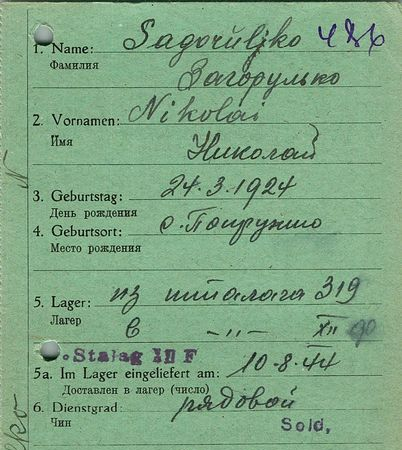 1. Name: Sagoruljko 486
Фамилия Загорулько
2. Vornamen: Nikolai
Имя Николай
3. Geburtstag: 24.3.1924
День рождения
4. Geburtsort: с.
Место рождения
5. Lager: из шталага 319
Лагер в -"- XII
Stalag III F
5a. Im Lager eingeliefert am: 10-8-44
Доставлен в лагер (число)
6. Dienstgrad: рядовой
Чин Sold.